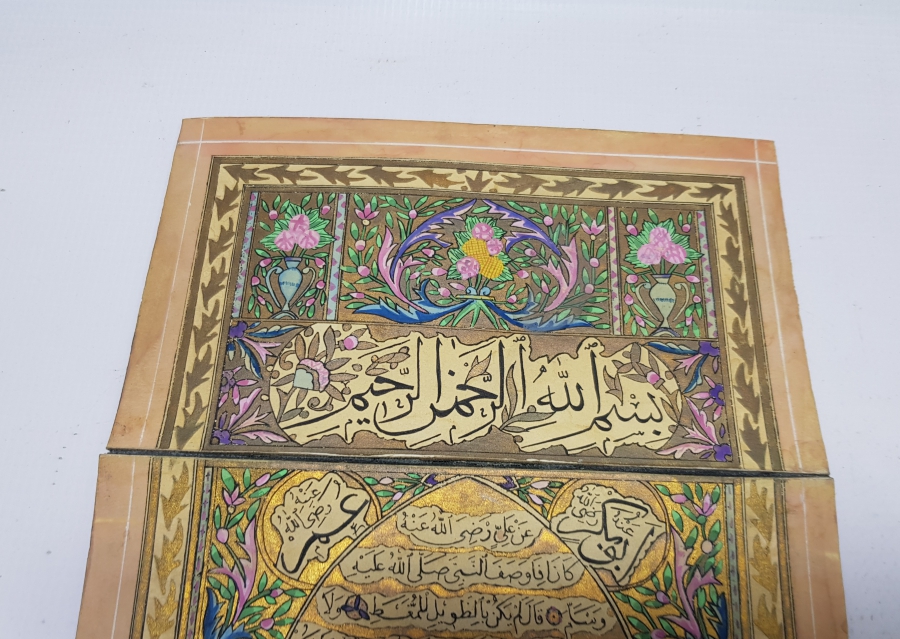 بِسْمِ اللهِ الرَّحْمٰنِ الرَّحِيمِ
ابوبكر رضى الله عنه
عمر رضى الله عنه
عَنْ عَلِىٍّ رَضِىَ اللهُ عَنْهُ
كَانَ اِذَا وَصَفَ النَّبِىَّ صَلَّى اللهُ عَلَيْهِ
وَسَلَّمَ قَالَ لَمْ يَكُنْ بِالطَّوِيلِ الْمُمَّغِطِ وَلَا